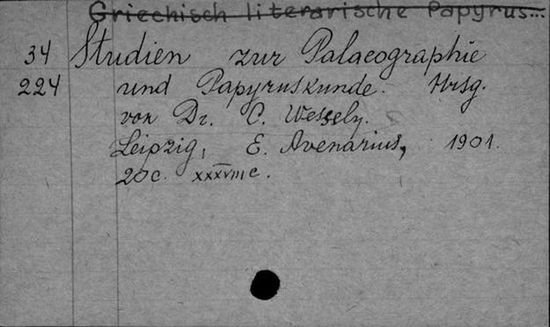 Griechisch literarische Papyrus...
34 Studien zur Palaeographie
224 und Papyruskunde. Hrsg.
von Dr. C. Wessely.
Leipzig, E. Avenarius, 1901.
20c. XXXVIII c.